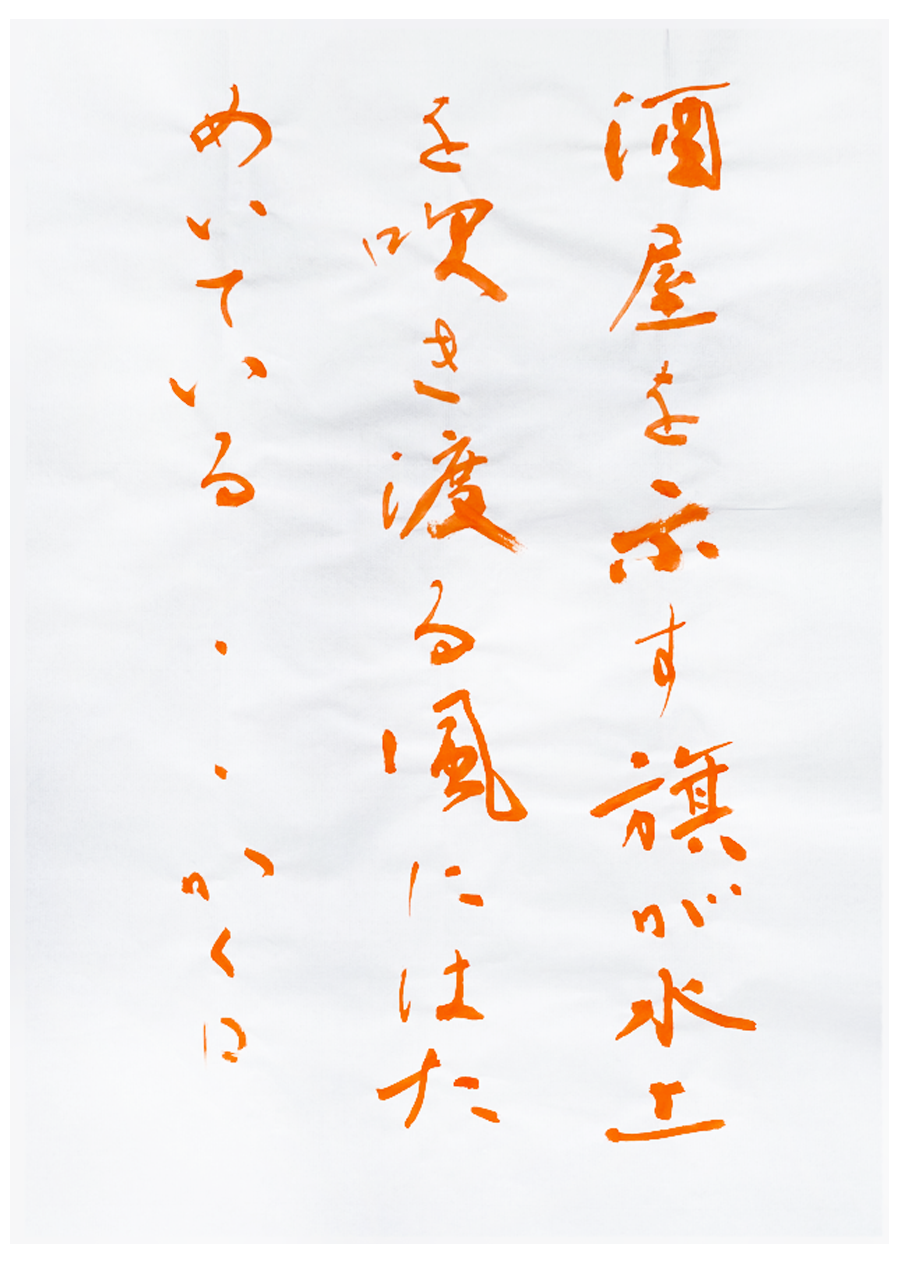 酒屋を示す旗が水上
を吹き渡る風にはた
めいている・・かくロ